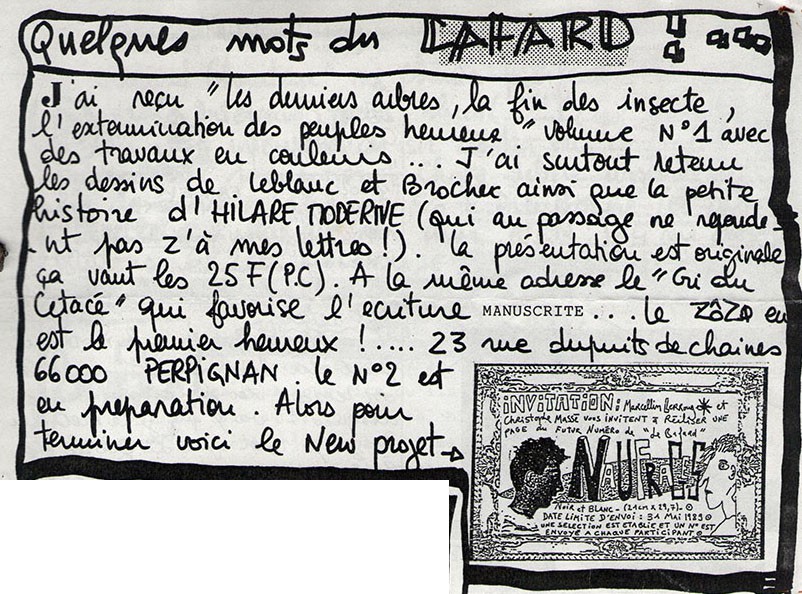 Quelques mots du CAFARD
J'ai reçu "les derniers arbres, la fin des insecte,
l'extermination des peuples heureux" volume N°1 avec
des travaux en couleurs... J'ai surtout retenu
les dessins de Leblanc et Brochec ainsi que la petite
histoire d'HILARE MODERNE (qui au passage ne reponde-
-nt pas z'à mes lettres!). la présentation est originale
ça vaut les 25F(P.C). A la même adresse le "Cri du
Cetacé" qui favorise l'ecriture MANUSCRITE... le ZôZo en
est le premier heureux!.... 23 rue dupuits de chaines
66000 PERPiGNAN. le N°2 est
en preparation. Alors pour
terminer voici le New projet
iNViTATiON: Marcellin et
Christophe MASSÉ vous iNViTENT à RéALiSER UNE
PAGE du FUTUR NUMéRO de "Le Bafard"
NAUFRAGES
NOiR et BLANC - (21cm x 29,7).
DATE LiMiTE D'ENVOi : 31 MAi 1989
UNE SELECTiON EST ETABLiE ET UN N° EST
ENVOYÉ A CHAQUE PARTiCiPANT